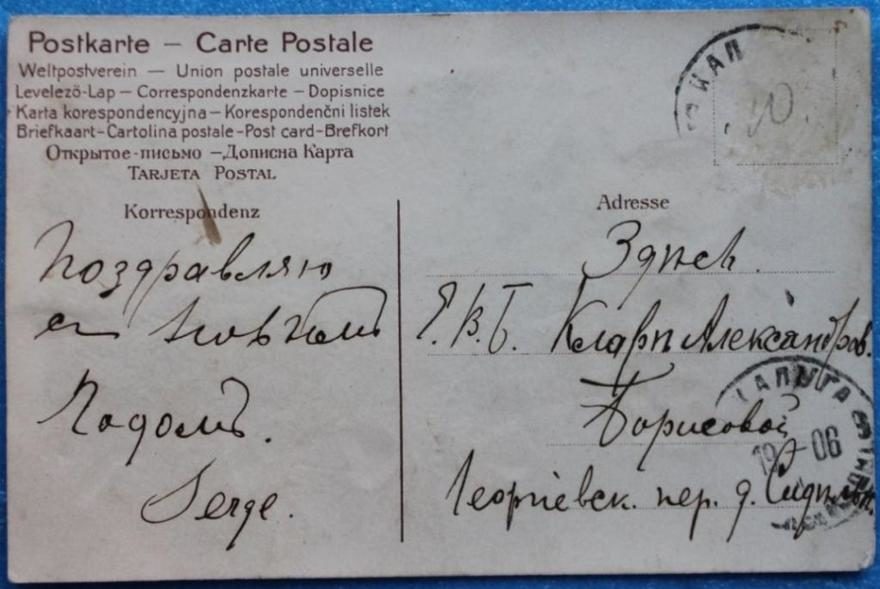 Postkarte — Carte Postale
Weltpostverein — Union postale universelle
Levelező-Lap — Correspondenzkarte — Dopisnice
Karta korespondencyjna — Korespondenční lístek
Briefkaart-Cartolina postale-Post card-Brefkort
Открытое-письмо —Дописна Карта
TARJETA POSTAL
Korrespondenz
Поздравляю
съ Новымъ
Годомъ.
Serge.
Adresse
Здѣсь.
Е. В. Б. Клары Александров.
Борисовой
Георгіевск. пер. д.
КАЛУГА
19 06
10.